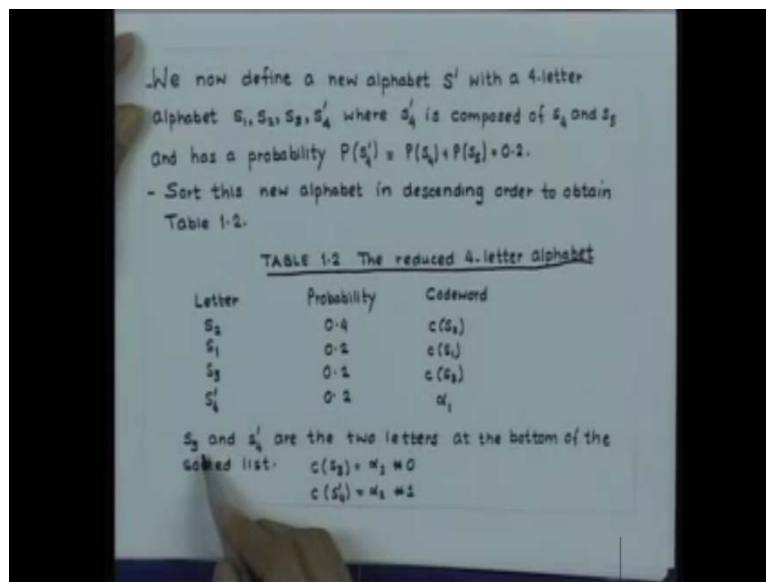 -We now define a new alphabet S' with a 4-letter
alphabet S₁, S₂, S₃, S₄' where S₄' is composed of S₄ and S₅
and has a probability P(S₄') = P(S₄) + P(S₅) = 0.2.
- Sort this new alphabet in descending order to obtain
Table 1.2.
TABLE 1.2 The reduced 4-letter alphabet
Letter Probability Codeword
S₂ 0.4 c(S₂)
S₁ 0.2 c(S₁)
S₃ 0.2 c(S₃)
S₄' 0.2 α₁
S₃ and S₄' are the two letters at the bottom of the
sorted list. c(S₃) = α₂ * 0
c(S₄') = α₂ * 1